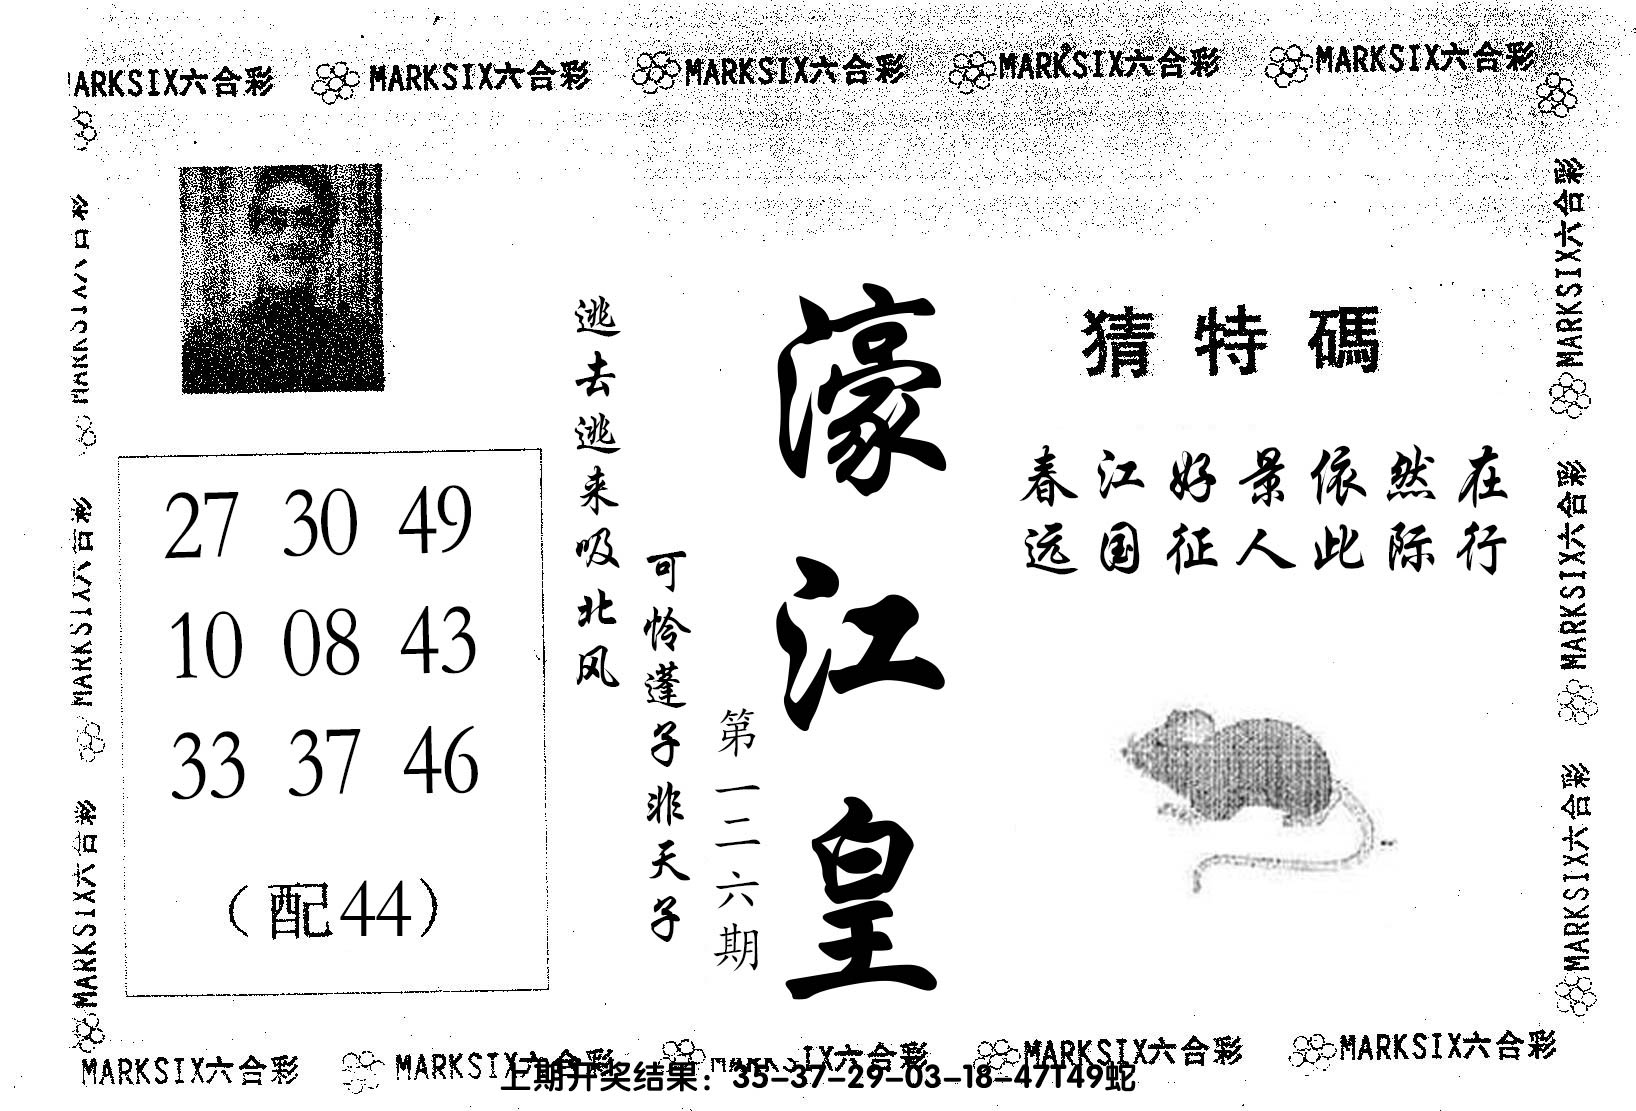 MARKSIX六合彩 MARKSIX六合彩 MARKSIX六合彩 MARKSIX六合彩 MARKSIX六合彩
猜特碼
春江好景依然在
远国征人此际行
濠江皇
第一二六期
逃去逃来吸北风
可怜蓬子非天子
27 30 49
10 08 43
33 37 46
（配44）
MARKSIX六合彩
MARKSIX六合彩
MARKSIX六合彩
MARKSIX六合彩
MARKSIX六合彩
MARKSIX六合彩
MARKSIX六合彩 MARKSIX六合彩 MARKSIX六合彩 MARKSIX六合彩 MARKSIX六合彩
上期开奖结果：35-37-29-03-18-47T49蛇